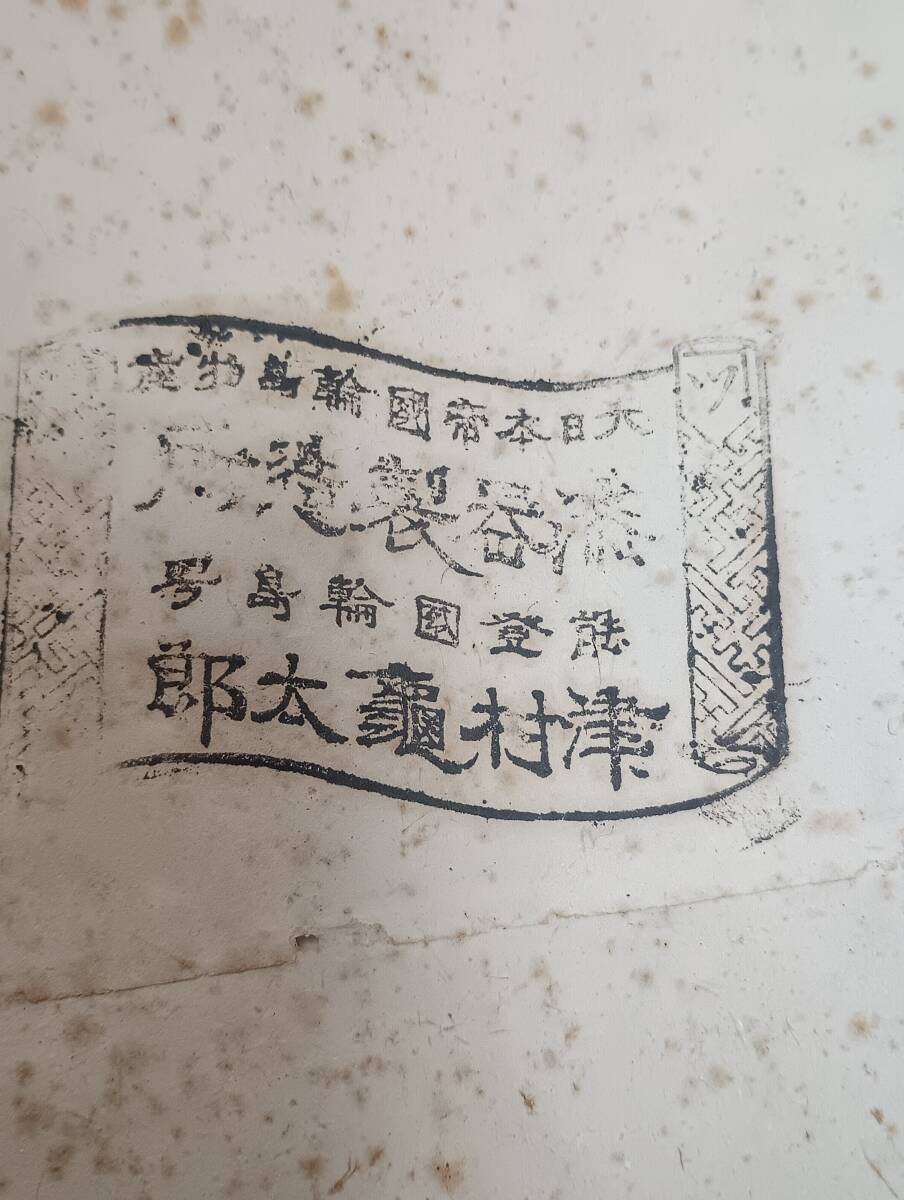 大日本帝國輪島物産
漆器製造所
能登國輪島号
津村龜太郎
ツ